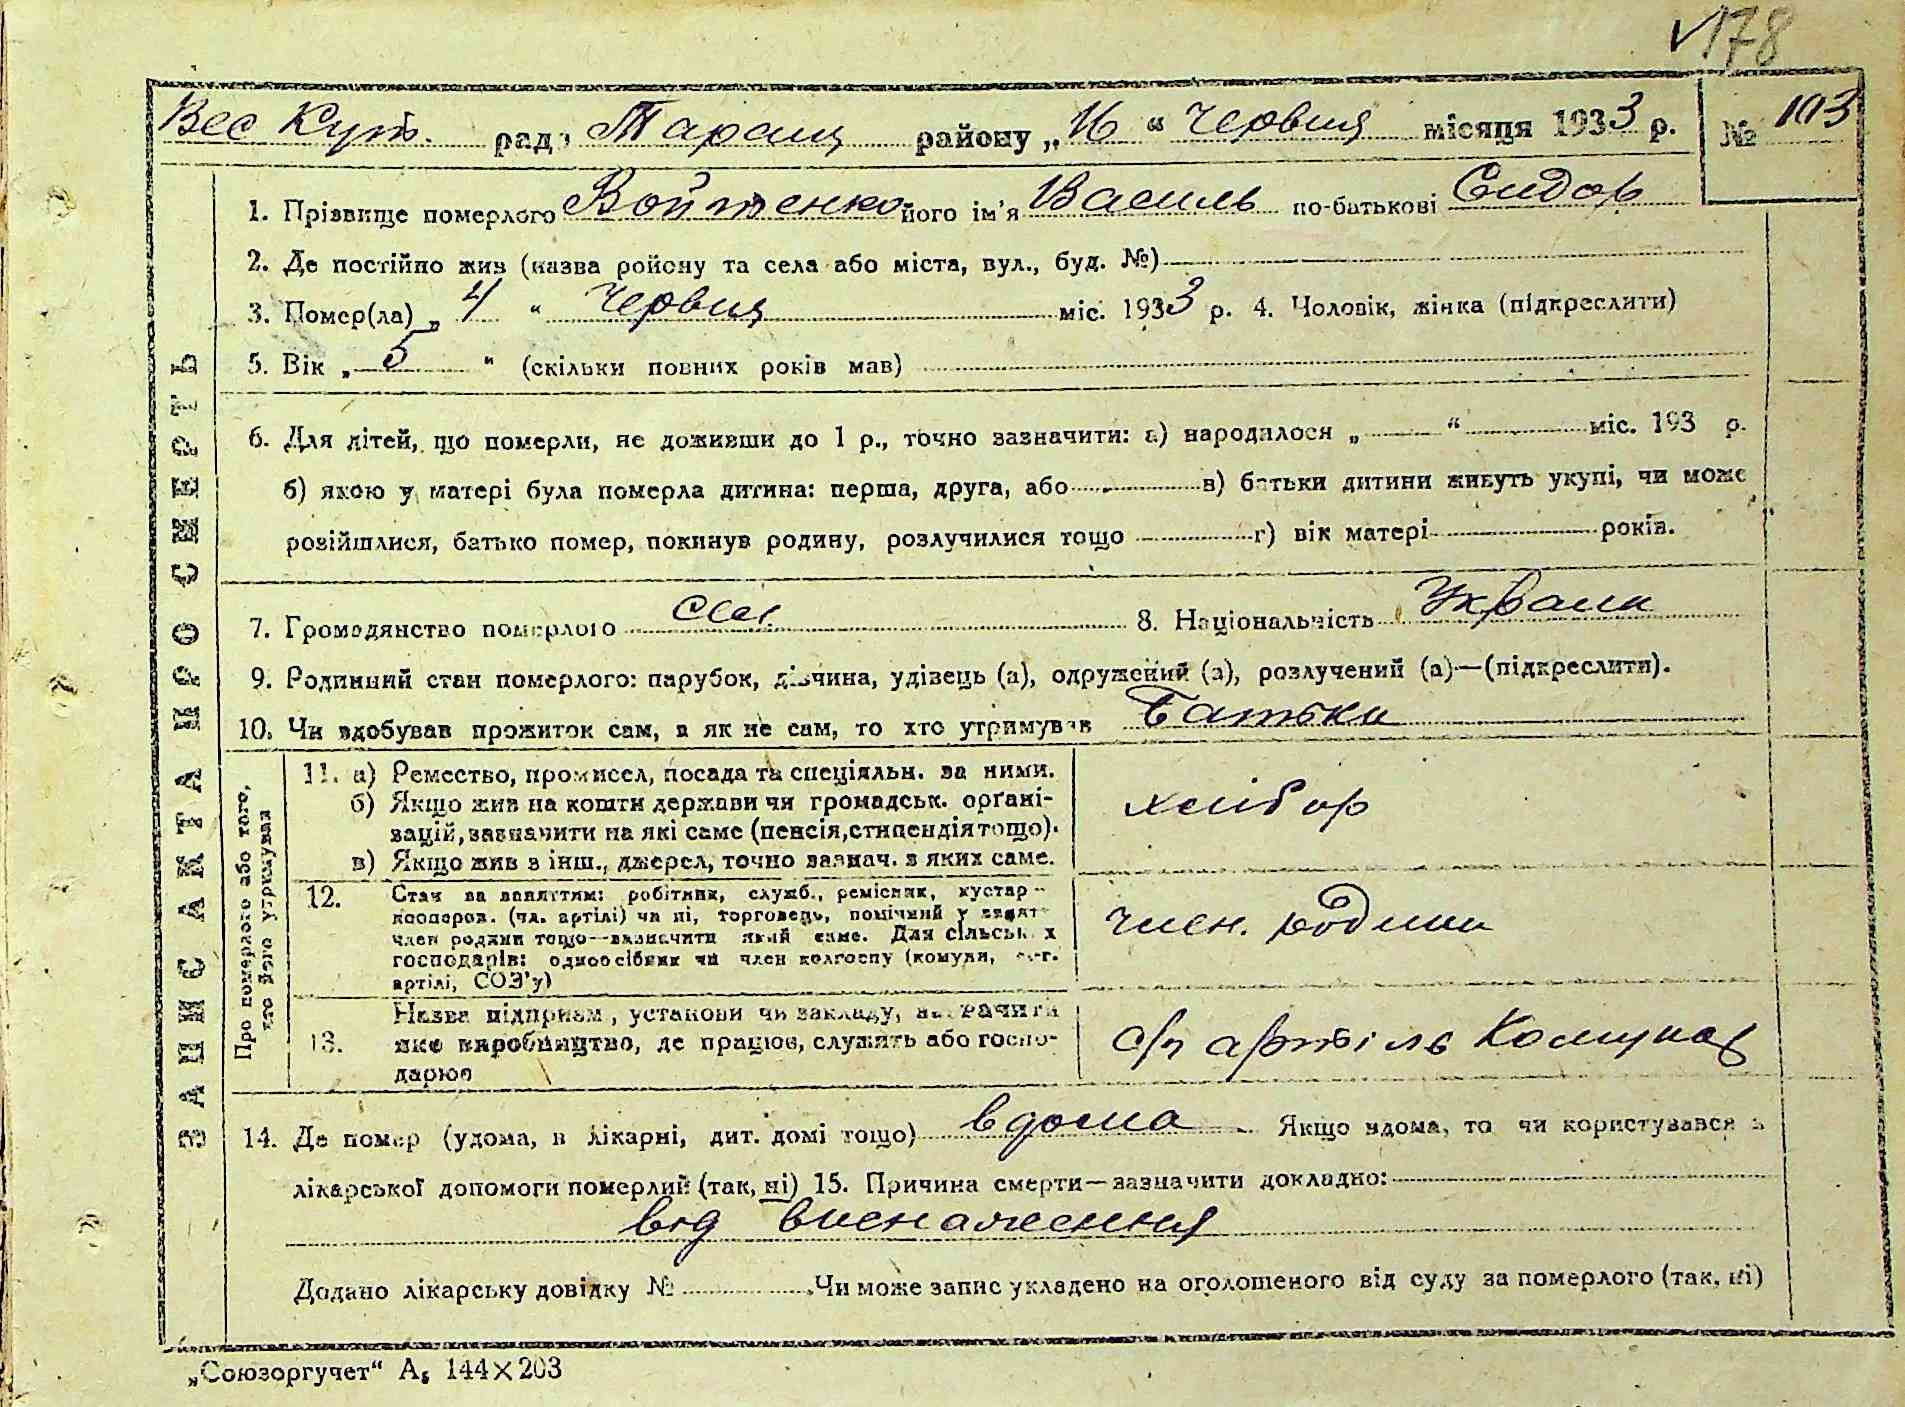 178
Вес Кут. рад. Таращ району „16“ Червця місяця 1933 р. № 103
ЗАПИС АКТА ПРО СМЕРТЬ
1. Прізвище померлого Войтенко його ім'я Василь по-батькові Сидор
2. Де постійно жив (назва ройону та села або міста, вул., буд. №)
3. Помер(ла) „4“ Червця міс. 1933 р. 4. Чоловік, жінка (підкреслити)
5. Вік „5“ (скільки повних років мав)
6. Для дітей, що померли, не доживши до 1 р., точно зазначити: а) народилося „ “ міс. 193 р.
б) якою у матері була померла дитина: перша, друга, або в) батьки дитини живуть укупі, чи може
розійшлися, батько помер, покинув родину, розлучилися тощо г) вік матері років.
7. Громадянство померлого 8. Національність Украін
9. Родинний стан померлого: парубок, дівчина, удівець (а), одружений (а), розлучений (а)—(підкреслити).
10. Чи здобував прожиток сам, а як не сам, то хто утримував Батьки
Про померлого або того,
хто його утримував
11. а) Ремество, промисел, посада та спеціяльн. за ними.
б) Якщо жив на кошти держави чи громадськ. орґані-
зацій, зазначити на які саме (пенсія, стипендія тощо).
в) Якщо жив з інш., джерел, точно зазнач. з яких саме.
хлібор
12. Стан за заняттям: робітник, служб., ремісник, кустар-
кооперов. (чл. артілі) чи ні, торговець, помічний у занят
член родини тощо—вазначити який саме. Для сільських
господарів: одноосібник чи член колгоспу (комуни, с.-г.
артілі, СОЗ'у)
член. родини
13. Назва підприєм, установи чи закладу,назначити
яке виробництво, де працює, служить або госпо-
дарює
с/г артіль Комунар
14. Де помер (удома, в лікарні, дит. домі тощо) вдома Якщо вдома, то чи користувався з
лікарської допомоги померлий (так, ні) 15. Причина смерти—зазначити докладно:
від виснаження
Додано лікарську довідку № Чи може запис укладено на оголошеного від суду за померлого (так, ні)
„Союзоргучет“ А5 144×203